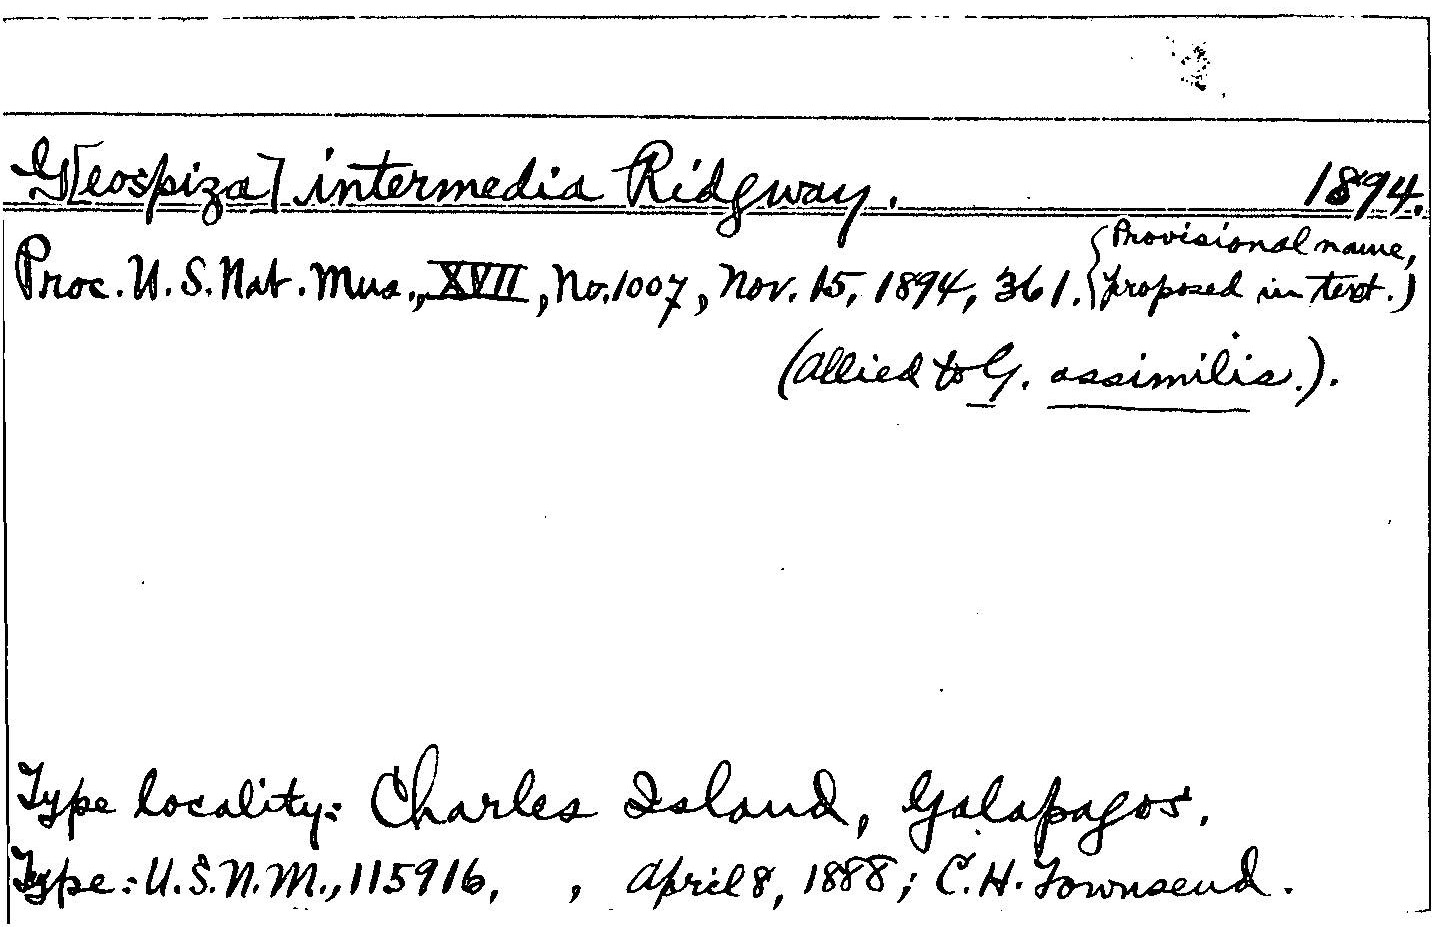 G[eospiza] intermedia Ridgway. 1894.
Proc. U.S. Nat. Mus., XVII, No. 1007, Nov. 15, 1894, 361. {Provisional name,
proposed in text.)
(Allied to G. assimilis.).
Type locality: Charles Island, Galapagos.
Type: U.S.N.M., 115916, , April 8, 1888; C.H. Townsend.